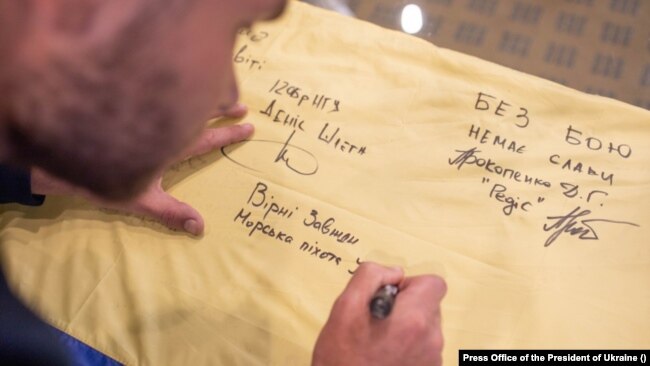 віті
12 бр НГУ
Деніс Шлега
БЕЗ БОЮ
НЕМАЄ СЛАВИ
Прокопенко Д.Г.
"Редіс"
Вірні Завжди
Морська піхота У
Press Office of the President of Ukraine ()